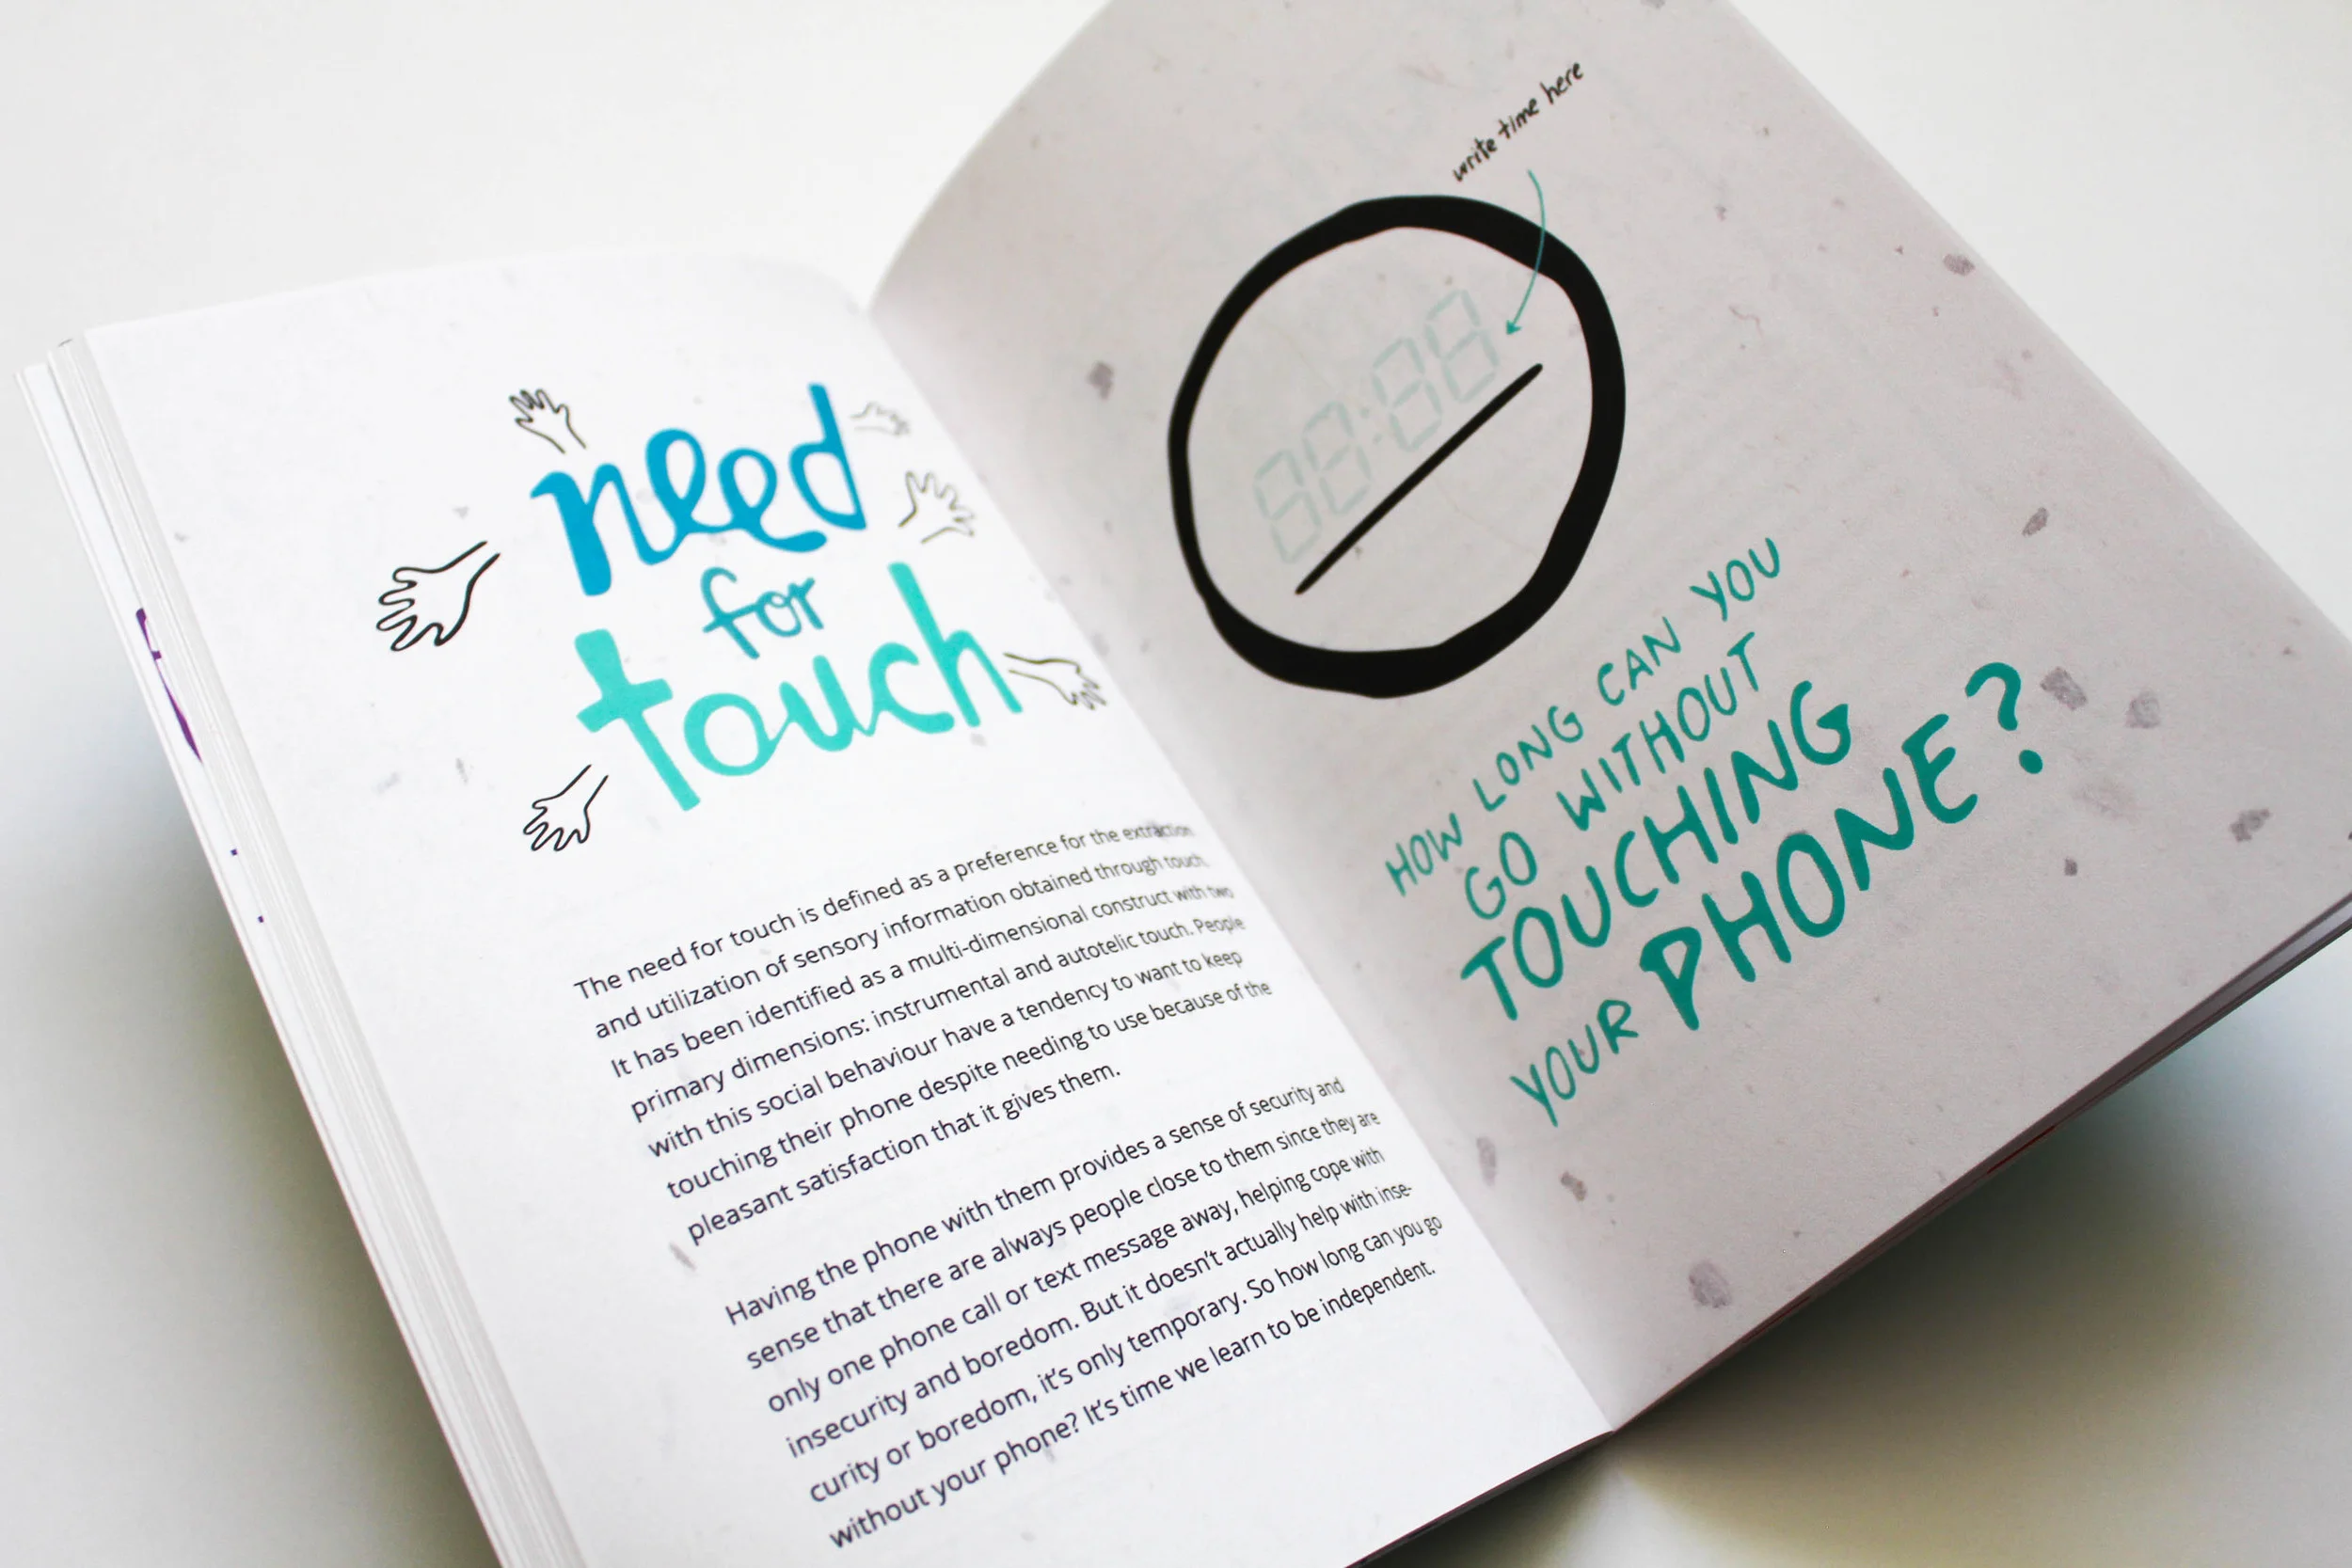 need
for
touch
The need for touch is defined as a preference for the extraction
and utilization of sensory information obtained through touch.
It has been identified as a multi-dimensional construct with two
primary dimensions: instrumental and autotelic touch. People
with this social behaviour have a tendency to want to keep
touching their phone despite needing to use because of the
pleasant satisfaction that it gives them.
Having the phone with them provides a sense of security and
sense that there are always people close to them since they are
only one phone call or text message away, helping cope with
insecurity and boredom. But it doesn't actually help with inse-
curity or boredom, it's only temporary. So how long can you go
without your phone? It's time we learn to be independent.
write time here
88:88
HOW LONG CAN YOU
GO WITHOUT
TOUCHING
YOUR PHONE?